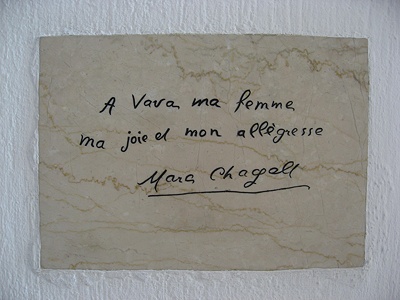 A Vava ma femme
ma joie et mon allègresse
Marc Chagall